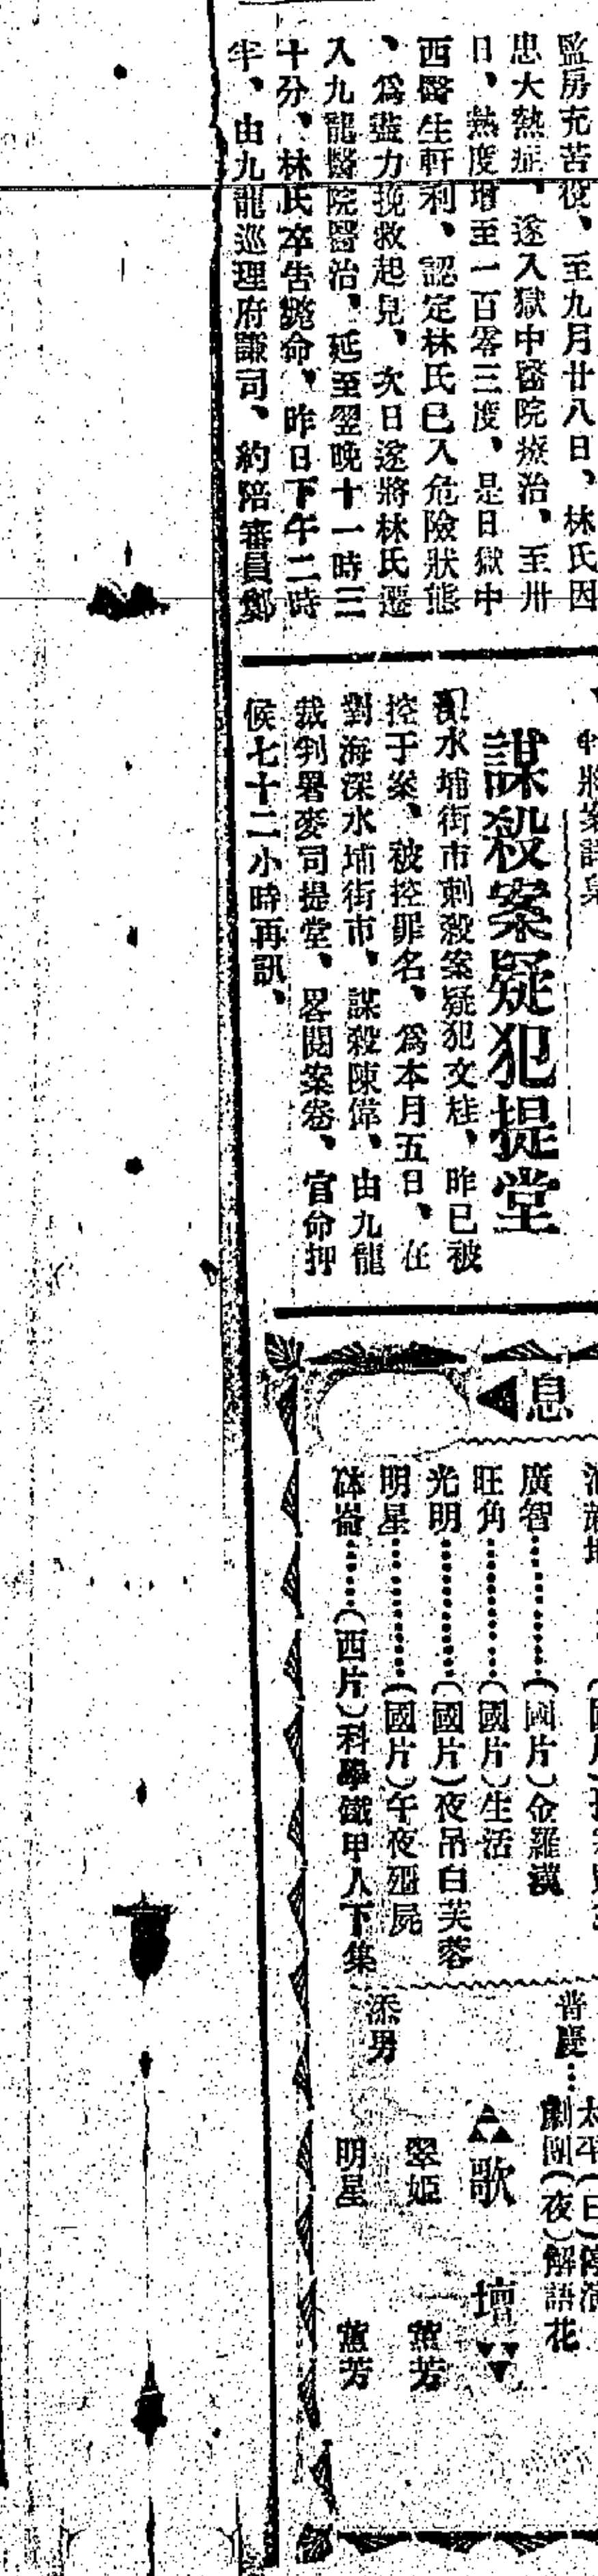 監房充苦役、至九月廿八日、林氏因
患大熱症、遂入獄中醫院療治、至卅
日、熱度增至一百零三度、是日獄中
西醫生軒利、認定林氏已入危險狀態
、爲盡力挽救起見、次日遂將林氏遷
入九龍醫院醫治、延至翌晚十一時三
十分、林氏卒告斃命、昨日下午二時
半、由九龍巡理府謙司、約陪審員鄭
謀殺案疑犯提堂
深水埔街市刺殺案疑犯文桂、昨已被
控于案、被控罪名、爲本月五日、在
對海深水埔街市、謀殺陳偉、由九龍
裁判署麥司提堂、畧閱案卷、官命押
候七十二小時再訊、
息
廣智⋯⋯⋯(國片)金羅漢
旺角⋯⋯⋯(國片)生活
光明⋯⋯⋯(國片)夜吊白芙蓉
明星⋯⋯⋯(國片)午夜殭屍
砵崙⋯⋯(西片)科學鐵甲人下集
普慶⋯
太平(日)停演
劇團(夜)解語花
歌 壇
翠姬 蕙芳
添男
明星 蕙芳